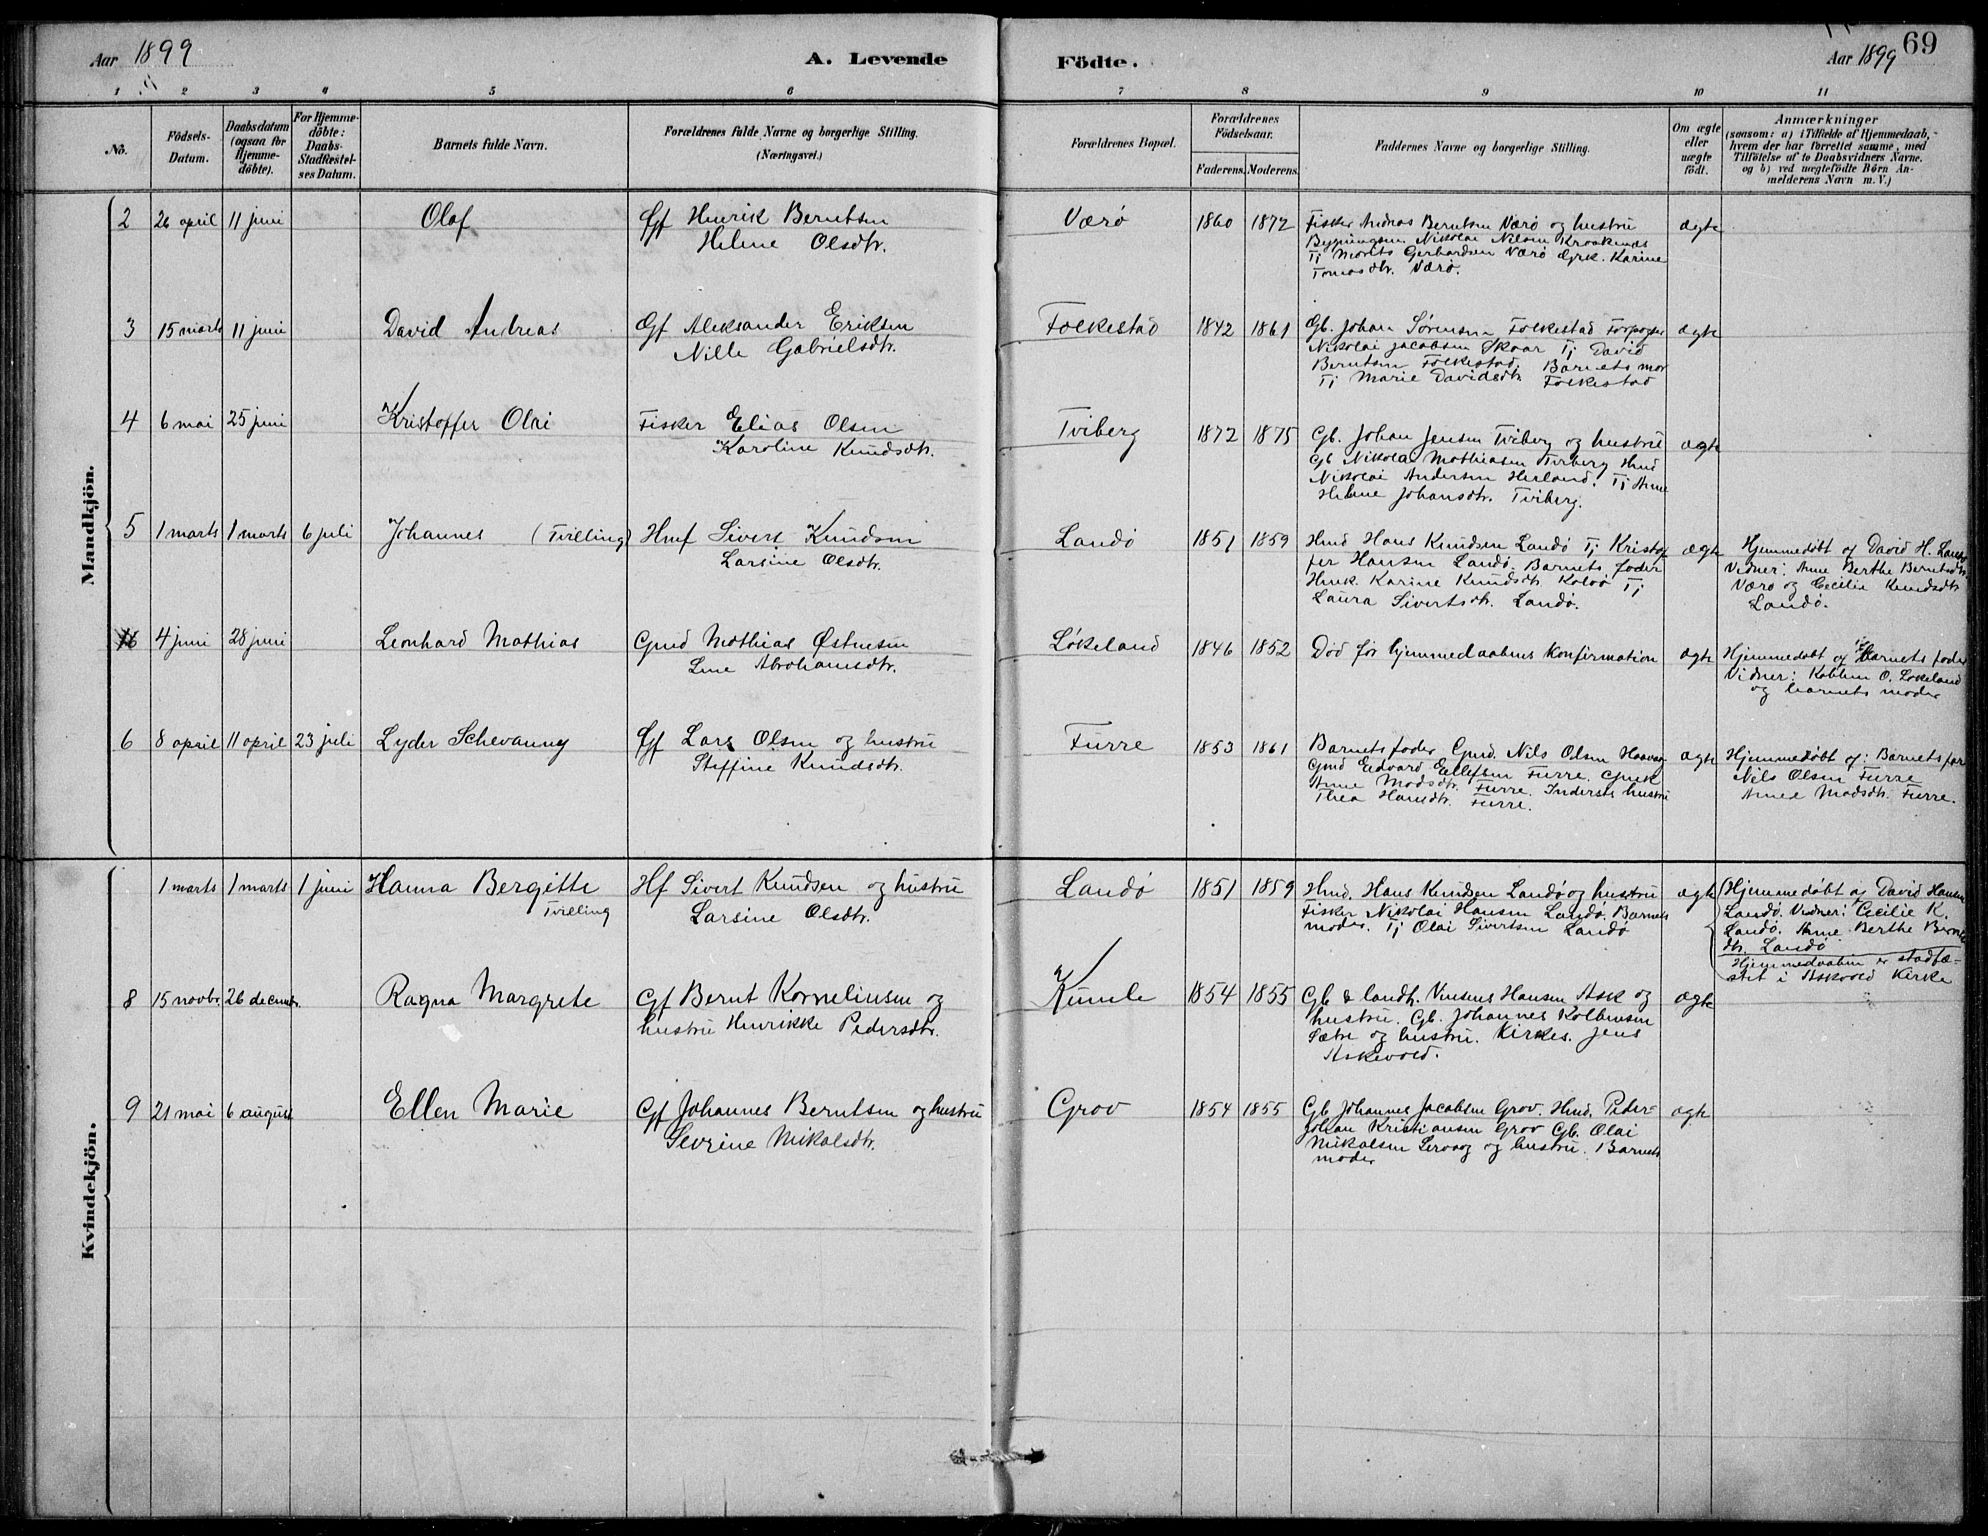 Aar 1899
A. Levende
Födte.
Aar 1899
69
1 2 3 4 5 6 7 8 9 10 11
No.
Födsels-
Datum.
Daabsdatum
(ogsaa for
Hjemme-
döbte).
For Hjemme-
döbte:
Daabs-
Stadfæstel-
ses Datum.
Barnets fulde Navn.
Forældrenes fulde Navne og borgerlige Stilling.
(Næringsvei.)
Forældrenes Bopæl.
Forældrenes
Födselsaar.
Faderens. Moderens.
Faddernes Navne og borgerlige Stilling.
Om ægte
eller
uægte
födt.
Anmærkninger
(saasom: a) i Tilfælde af Hjemmedaab,
hvem der har forrettet samme, med
Tilföielse af to Daabsvidners Navne.
og b) ved uægtefödte Börn An-
melderens Navn m. V.)
Mandkjön.
2 26 april 11 juni Olaf
Gf Henrik Berntsen
Helene Olsdtr.
Værö 1860 1872
Fisker Andreas Berntsen Værö og hustru
Nikolai Nilsen Kraakenes
Tj Morits Gerhardsen Værö Karine
Tomasdtr. Værö.
ægte
3 15 marts 11 juni David Andreas
Gf Aleksander Eriksen
Nille Gabrielsdtr.
Folkestad 1842 1861
Gb. Johan Sørensen Folkestad
Nikolai Jacobsen Skaar Tj David
Berntsen Folkestad. Barnets mor
Tj Marie Davidsdtr. Folkestad
ægte
4 6 mai 25 juni Kristoffer Olai
Fisker Elias Olsen
Karoline Knudsdtr.
Tviberg 1872 1875
Gb. Johan Jensen Tviberg og hustru
Gb Nikolai Mathiasen Tviberg Hmd
Nikolai Andersen Herland. Tj Anne
Helene Johansdtr. Tviberg.
ægte
5 1 marts 1 marts 6 juli Johannes (Tvilling)
Hmf Sivert Knudsen
Larsine Olsdtr.
Landö 1851 1859
Hmd Hans Knudsen Landö Tj Kristof
fer Hansen Landö. Barnets fader
Hmk. Karine Knudsdtr. Tj
Laura Sivertsdtr. Landö.
ægte
Hjemmedøbt af David H. Landö
Vidner: Anne Berthe Berntsdtr.
Værö og Cecilie Knudsdtr
Landö.
6 4 juni 28 juni Leonhard Mathias
Gmd Mathias Østensen
Line Abrahamsdtr.
Løkeland 1846 1852
Død før hjemmedaabens Konfirmation
ægte
Hjemmedøbt af Barnets fader
Vidner: O. Løkeland
og barnets moder
6 8 april 11 april 23 juli Lyder Schevanny
Gf Lars Olsen og hustru
Steffine Knudsdtr.
Furre 1853 1861
Barnets fader Gmd. Nils Olsen
Gmd Edvard Ellefsen Furre. Gmk
Anne Madsdtr. Furre. Inderste hustru
Thea Hansdtr. Furre.
ægte
Hjemmedøbt af: Barnets far
Nils Olsen Furre
Anne Madsdtr. Furre.
Kvindekjön.
1 marts 1 marts 1 juni Hanna Bergitte
Tvilling
Hf Sivert Knudsen og hustru
Larsine Olsdtr.
Landö 1851 1859
Hmd. Hans Knudsen Landö og hustru
Fisker Nikolai Hansen Landö. Barnets
moder. Tj Olai Sivertsen Landö
ægte
Hjemmedøbt af David Hansen
Landö. Vidner: Cecilie K.
Landö. Anne Berthe Bernts
dtr. Landö
Hjemmedaaben er stadfæ-
stet i Askvold Kirke
8 15 novbr. 26 decembr. Ragna Margrete
Gf Bernt Korneliusen og
hustru Henrikke Pedersdtr.
Kumle 1854 1855
Gb & landh. Vinsens Hansen Ask og
hustru. Gb. Johannes Kolbensen
Sætre og hustru. Kirkes. Jens
Askevold.
ægte
9 21 mai 6 august Ellen Marie
Gf Johannes Berntsen og hustru
Sevrine Mikalsdtr.
Grov 1854 1855
Gb Johannes Jacobsen Grov. Hmd. Peder
Johan Kristiansen Grov Gb. Olai
Mikalsen Servaag og hustru. Barnets
moder
ægte